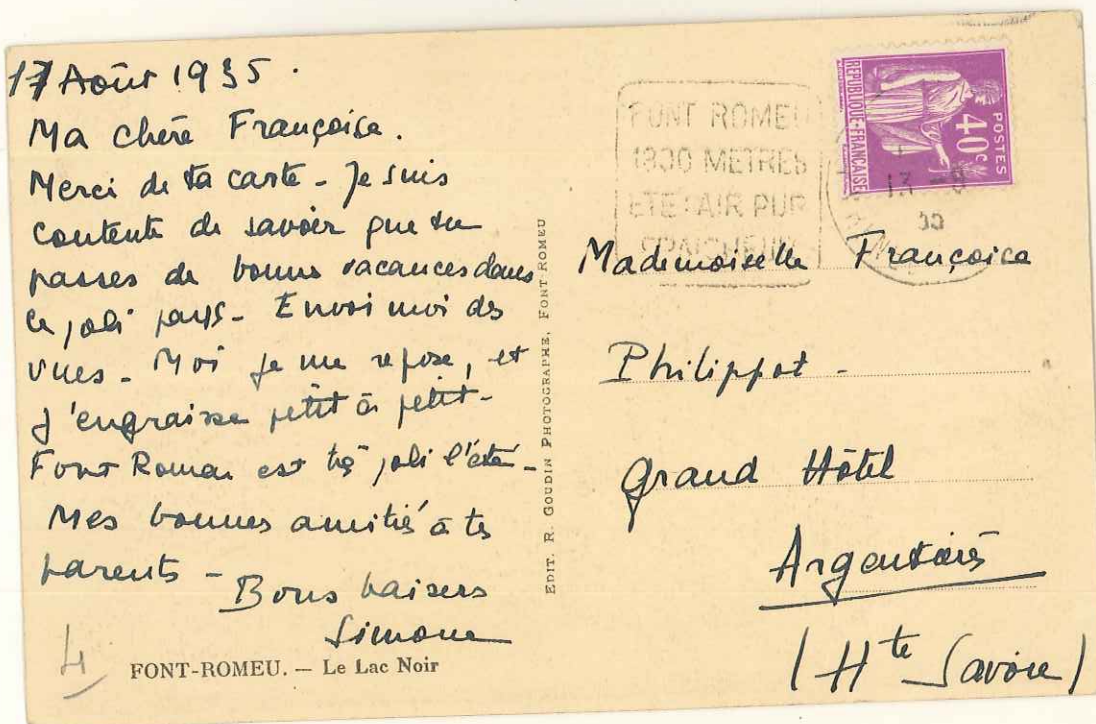 17 Août 1935.
Ma chère Françoise.
Merci de ta carte - Je suis
contente de savoir que tu
passes de bonnes vacances dans
ce joli pays - Envoi moi des
vues - Moi je me repose, et
j'engraisse petit à petit -
Font Romeu est très joli l'été -
Mes bonnes amitiés à tes
parents -
Bons baisers
Simone
4
FONT-ROMEU. — Le Lac Noir
EDIT. R. GOUDIN PHOTOGRAPHE, FONT ROMEU
FONT ROMEU
1800 METRES
ETE : AIR PUR
FRAICHEUR
REPUBLIQUE-FRANÇAISE
POSTES
40c
13 -8
35
Mademoiselle Françoise
Philippot -
Grand Hôtel
Argentières
(Hte Savoie)